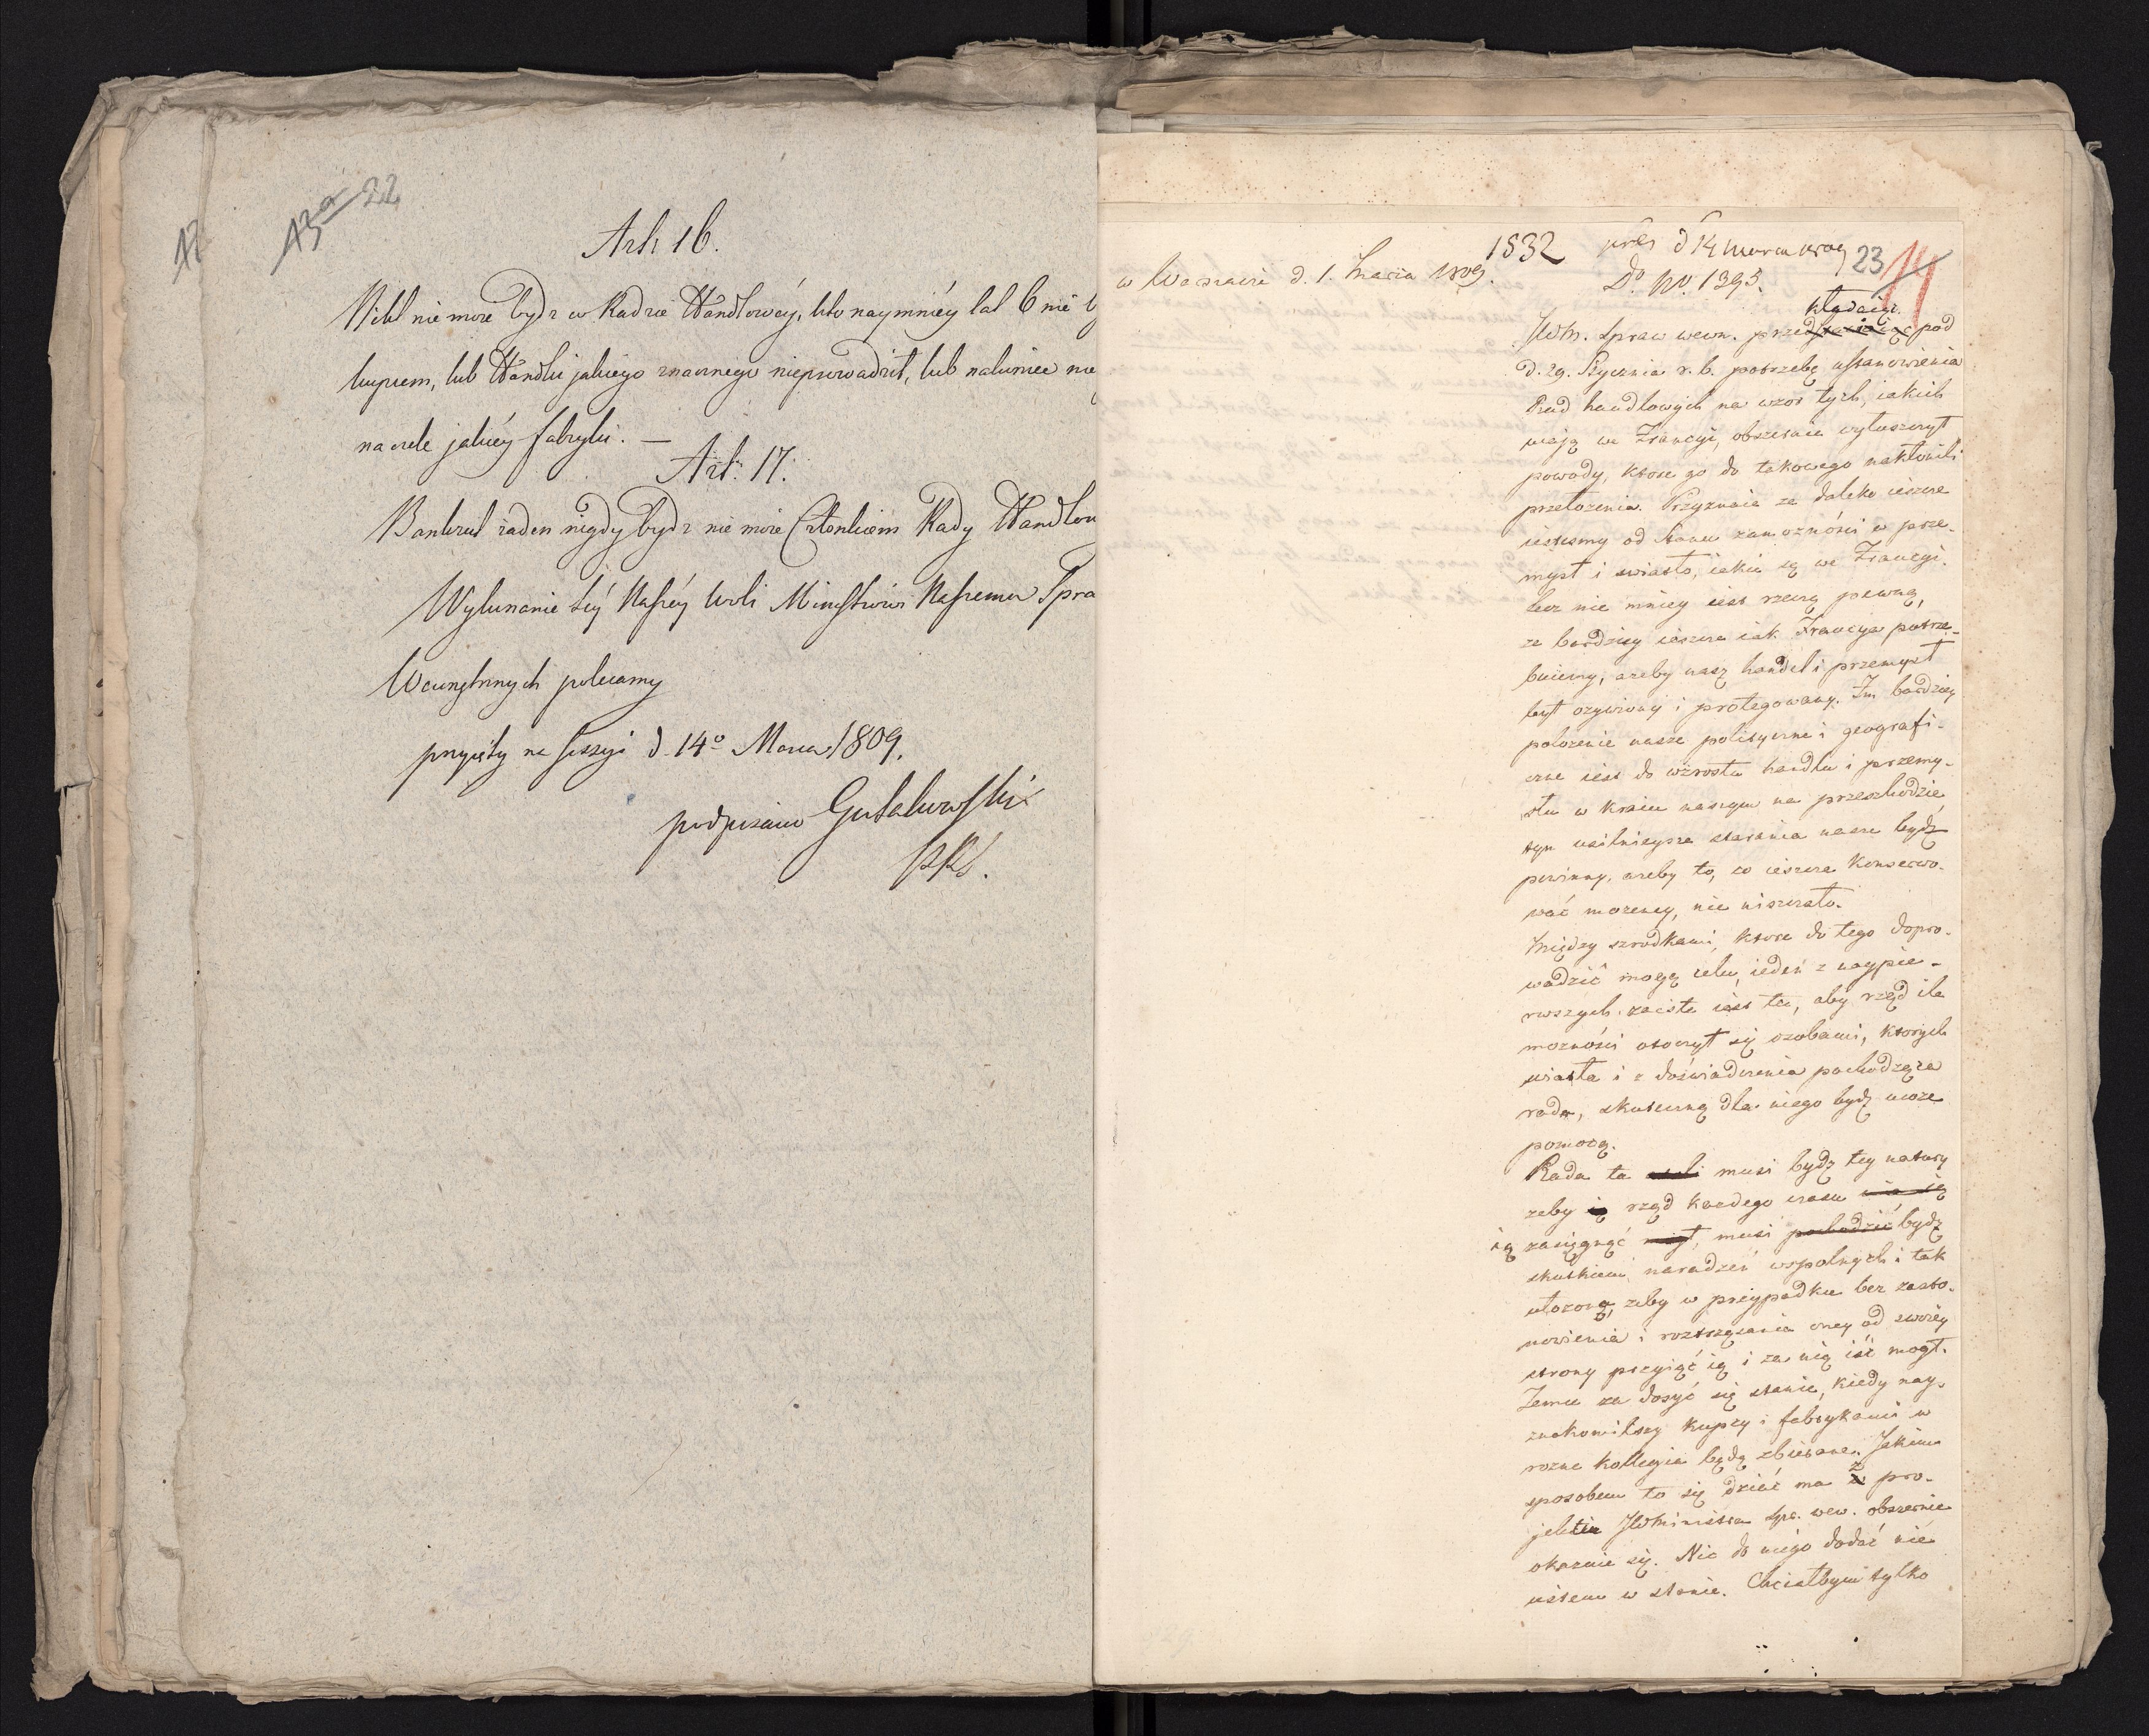 12
13a 22
Art 16.
Nikt nie może bydź w Radzie Handlowéy, kto naymniéy lat 6 nie b
kupcem, lub Handlu jakiego znacznego nieprowadził, lub nakoniec nie
na czele jakiéy fabryki. —
Art: 17.
Bankrut żaden nigdy bydź nie może Członkiem Rady Handlow
Wykonanie téy Naszéy woli Ministrowi Naszemu Spra
Wewnętrznych polecamy
przyięty na Sessyi d. 14o Marca 1809.
podpisano Gutakowski
PRS.
w Warszawie d. 1. Marca 1809.
1832
pres d 14 Marca 1809
Do No. 1393.
23 14
kładaiąc
JWM. Spraw wewn. przed pod
d. 29. Stycznia r. b. potrzebę ustanowienia
Rad handlowych na wzór tych, iakich
maią we Francyi, obszernie wyłuszczył
powody, ktore go do takowego nakłoniły
przełożenia. Przyznaie że daleko ieszcze
iesteśmy od stanu zamożności w prze-
mysł i swiatło, iakie są we Francyi.
lecz nie mniey iest rzeczą pewną,
że bardziey ieszcze iak Francya potrze-
buiemy, azeby nasz handel i przemysł
był ożywiony i protegowany. Im bardziey
położenie nasze polityczne i geografi-
czne iest do wzrostu handlu i przemy-
słu w kraiu naszym na przeszkodzie,
tym usilnieysze starania nasze bydź
powinny, azeby to, co ieszcze konserwo-
wać możemy, nie niszczało.
Między szrodkami, ktore do tego dopro-
wadzić mogą celu, ieden z naypie-
rwszych zaiste iest ten, aby rząd ile
możności otoczył się osobami, ktorych
swiatła i z doświadczenia pochodząca
rada, skuteczną dla niego bydź może
pomocą.
Rada ta musi bydź tey natury
żeby ią rząd każdego czasu
ią zasięgnąć mógł, musi pochodzić bydź
skutkiem naradzeń wspolnych i tak
ułożoną, żeby w przypadku bez zasta-
nowienia i roztrząsania oney od swoiey
strony przyiąć ią i za nią iść mogł.
Temu za dosyć się stanie, kiedy nay-
znakomitszy kupcy i fabrykanci w
rożne kollegia będą zbierane. Jakim
sposobem to się dziać ma z pro-
jektu JWMinistra Spr. wew. obszernie
okazuie się. Nic do niego dodać nie
iestem w stanie. Chciałbym tylko